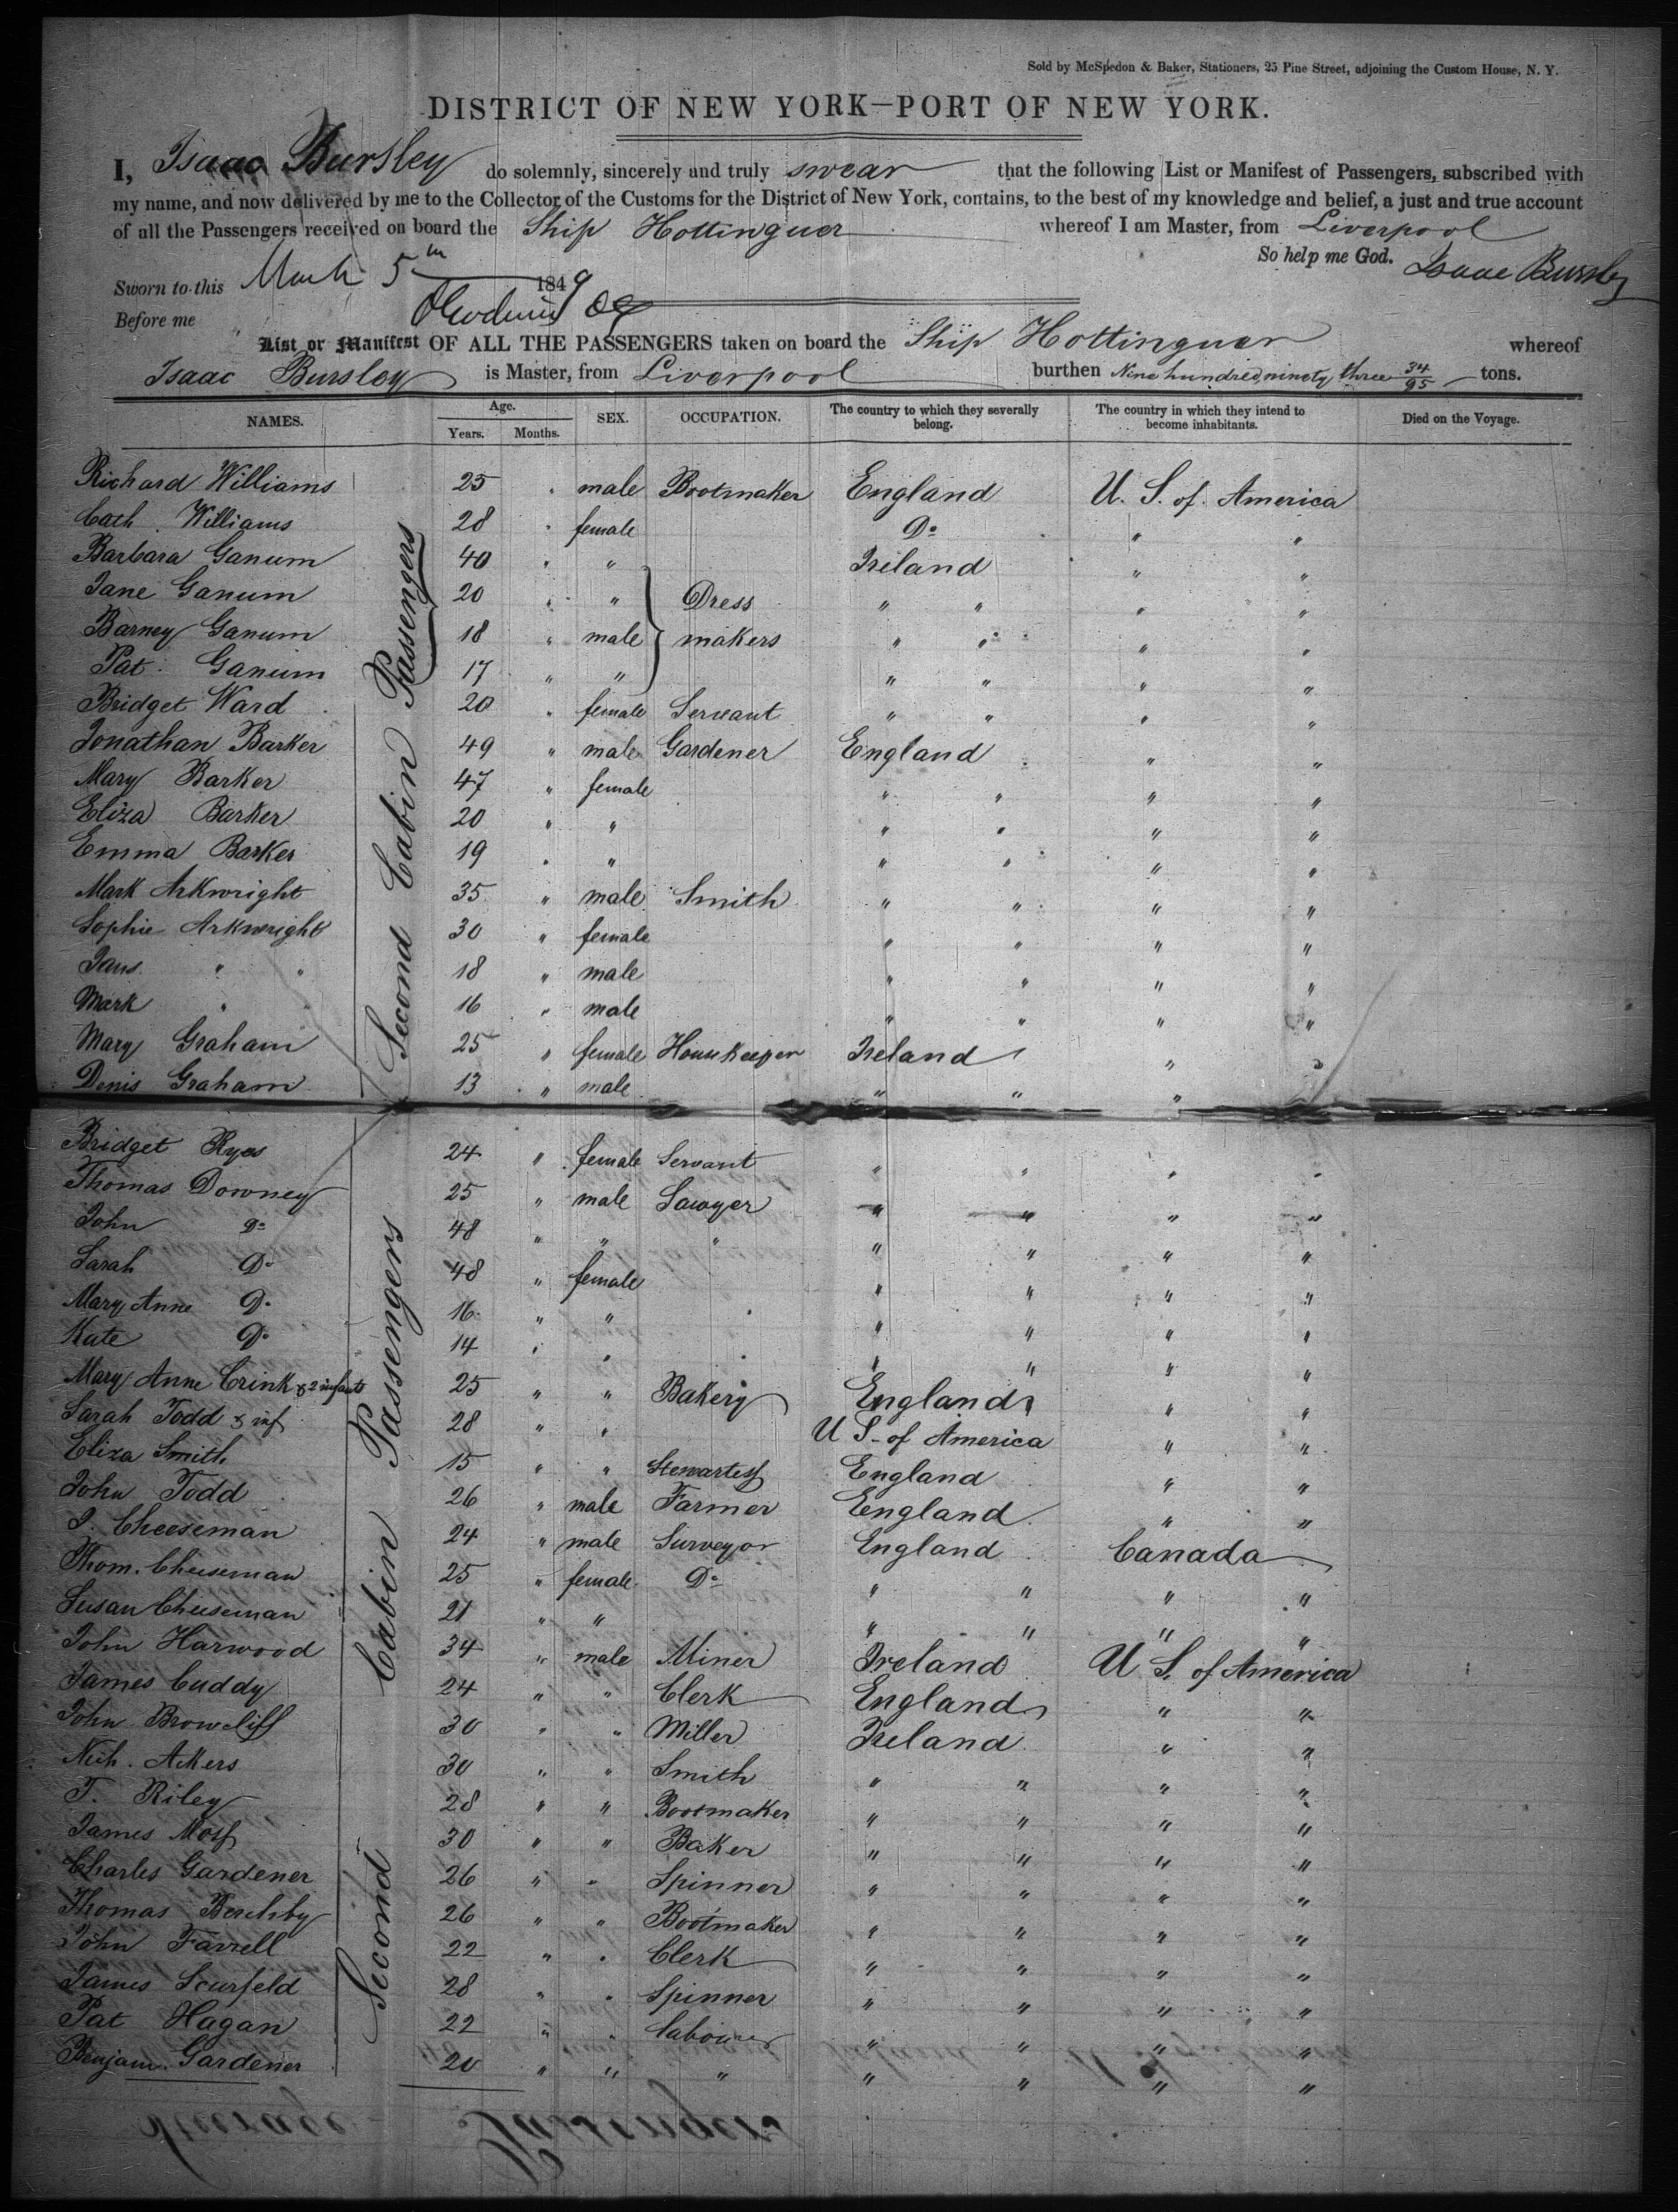 Sold by McSpedon & Baker, Stationers, 25 Pine Street, adjoining the Custom House, N. Y.
DISTRICT OF NEW YORK—PORT OF NEW YORK.
I, Isaac Bursley do solemnly, sincerely and truly swear that the following List or Manifest of Passengers, subscribed with
my name, and now delivered by me to the Collector of the Customs for the District of New York, contains, to the best of my knowledge and belief, a just and true account
of all the Passengers received on board the Ship Hottinguer whereof I am Master, from Liverpool
So help me God. Isaac Bursley
Sworn to this March 5th 1849
Before me
List or Manifest OF ALL THE PASSENGERS taken on board the Ship Hottinguer whereof
Isaac Bursley is Master, from Liverpool burthen Nine hundred ninety three 34/95 tons.
NAMES. Age. Years. Months. SEX. OCCUPATION. The country to which they severally belong. The country in which they intend to become inhabitants. Died on the Voyage.
Second Cabin Passengers
Richard Williams 25 " male Bootmaker England U. S. of America
Cath. Williams 28 " female Do " "
Barbara Ganum 40 " " Ireland " "
Jane Ganum 20 " " Dress " " " "
Barney Ganum 18 " male makers " " " "
Pat. Ganum 17 " " " " " "
Bridget Ward 20 " female Servant " " " "
Jonathan Barker 49 " male Gardener England " "
Mary Barker 47 " female " " " "
Eliza Barker 20 " " " " " "
Emma Barker 19 " " " " " "
Mark Arkwright 35 " male Smith " " " "
Sophie Arkwright 30 " female " " " "
" " 18 " male " " " "
Mark " 16 " male " " " "
Mary Graham 25 " female Housekeeper Ireland " "
Denis Graham 13 " male " " "
Second Cabin Passengers
Bridget 24 " female Servant " " " "
Thomas Downey 25 " male Sawyer " " " "
John Do 48 " " " " " " "
Sarah Do 48 " female " " " "
Mary Anne Do 16 " " " " " "
Kate Do 14 " " " " " "
Mary Anne Crink & 2 infants 25 " " Bakery England " "
Sarah Todd & inf 28 " " U S. of America " "
Eliza Smith 15 " " Stewartess England " "
John Todd 26 " male Farmer England " "
J. Cheeseman 24 " male Surveyor England Canada
Thom. Cheeseman 25 " female Do " " " "
Susan Cheeseman 21 " " " " " "
John Harwood 34 " male Miner Ireland U S. of America
James Cuddy 24 " " Clerk England " "
John Browcliff 30 " " Miller Ireland " "
Nich. Akers 30 " " Smith " " " "
T. Riley 28 " " Bootmaker " " " "
James Moss 30 " " Baker " " " "
Charles Gardener 26 " " Spinner " " " "
Thomas 26 " " Bootmaker " " " "
John Farrell 22 " " Clerk " " " "
James Scurfeld 28 " " Spinner " " " "
Pat Hagan 22 " " labourer " " " "
Benjam. Gardener 20 " " " " " " "